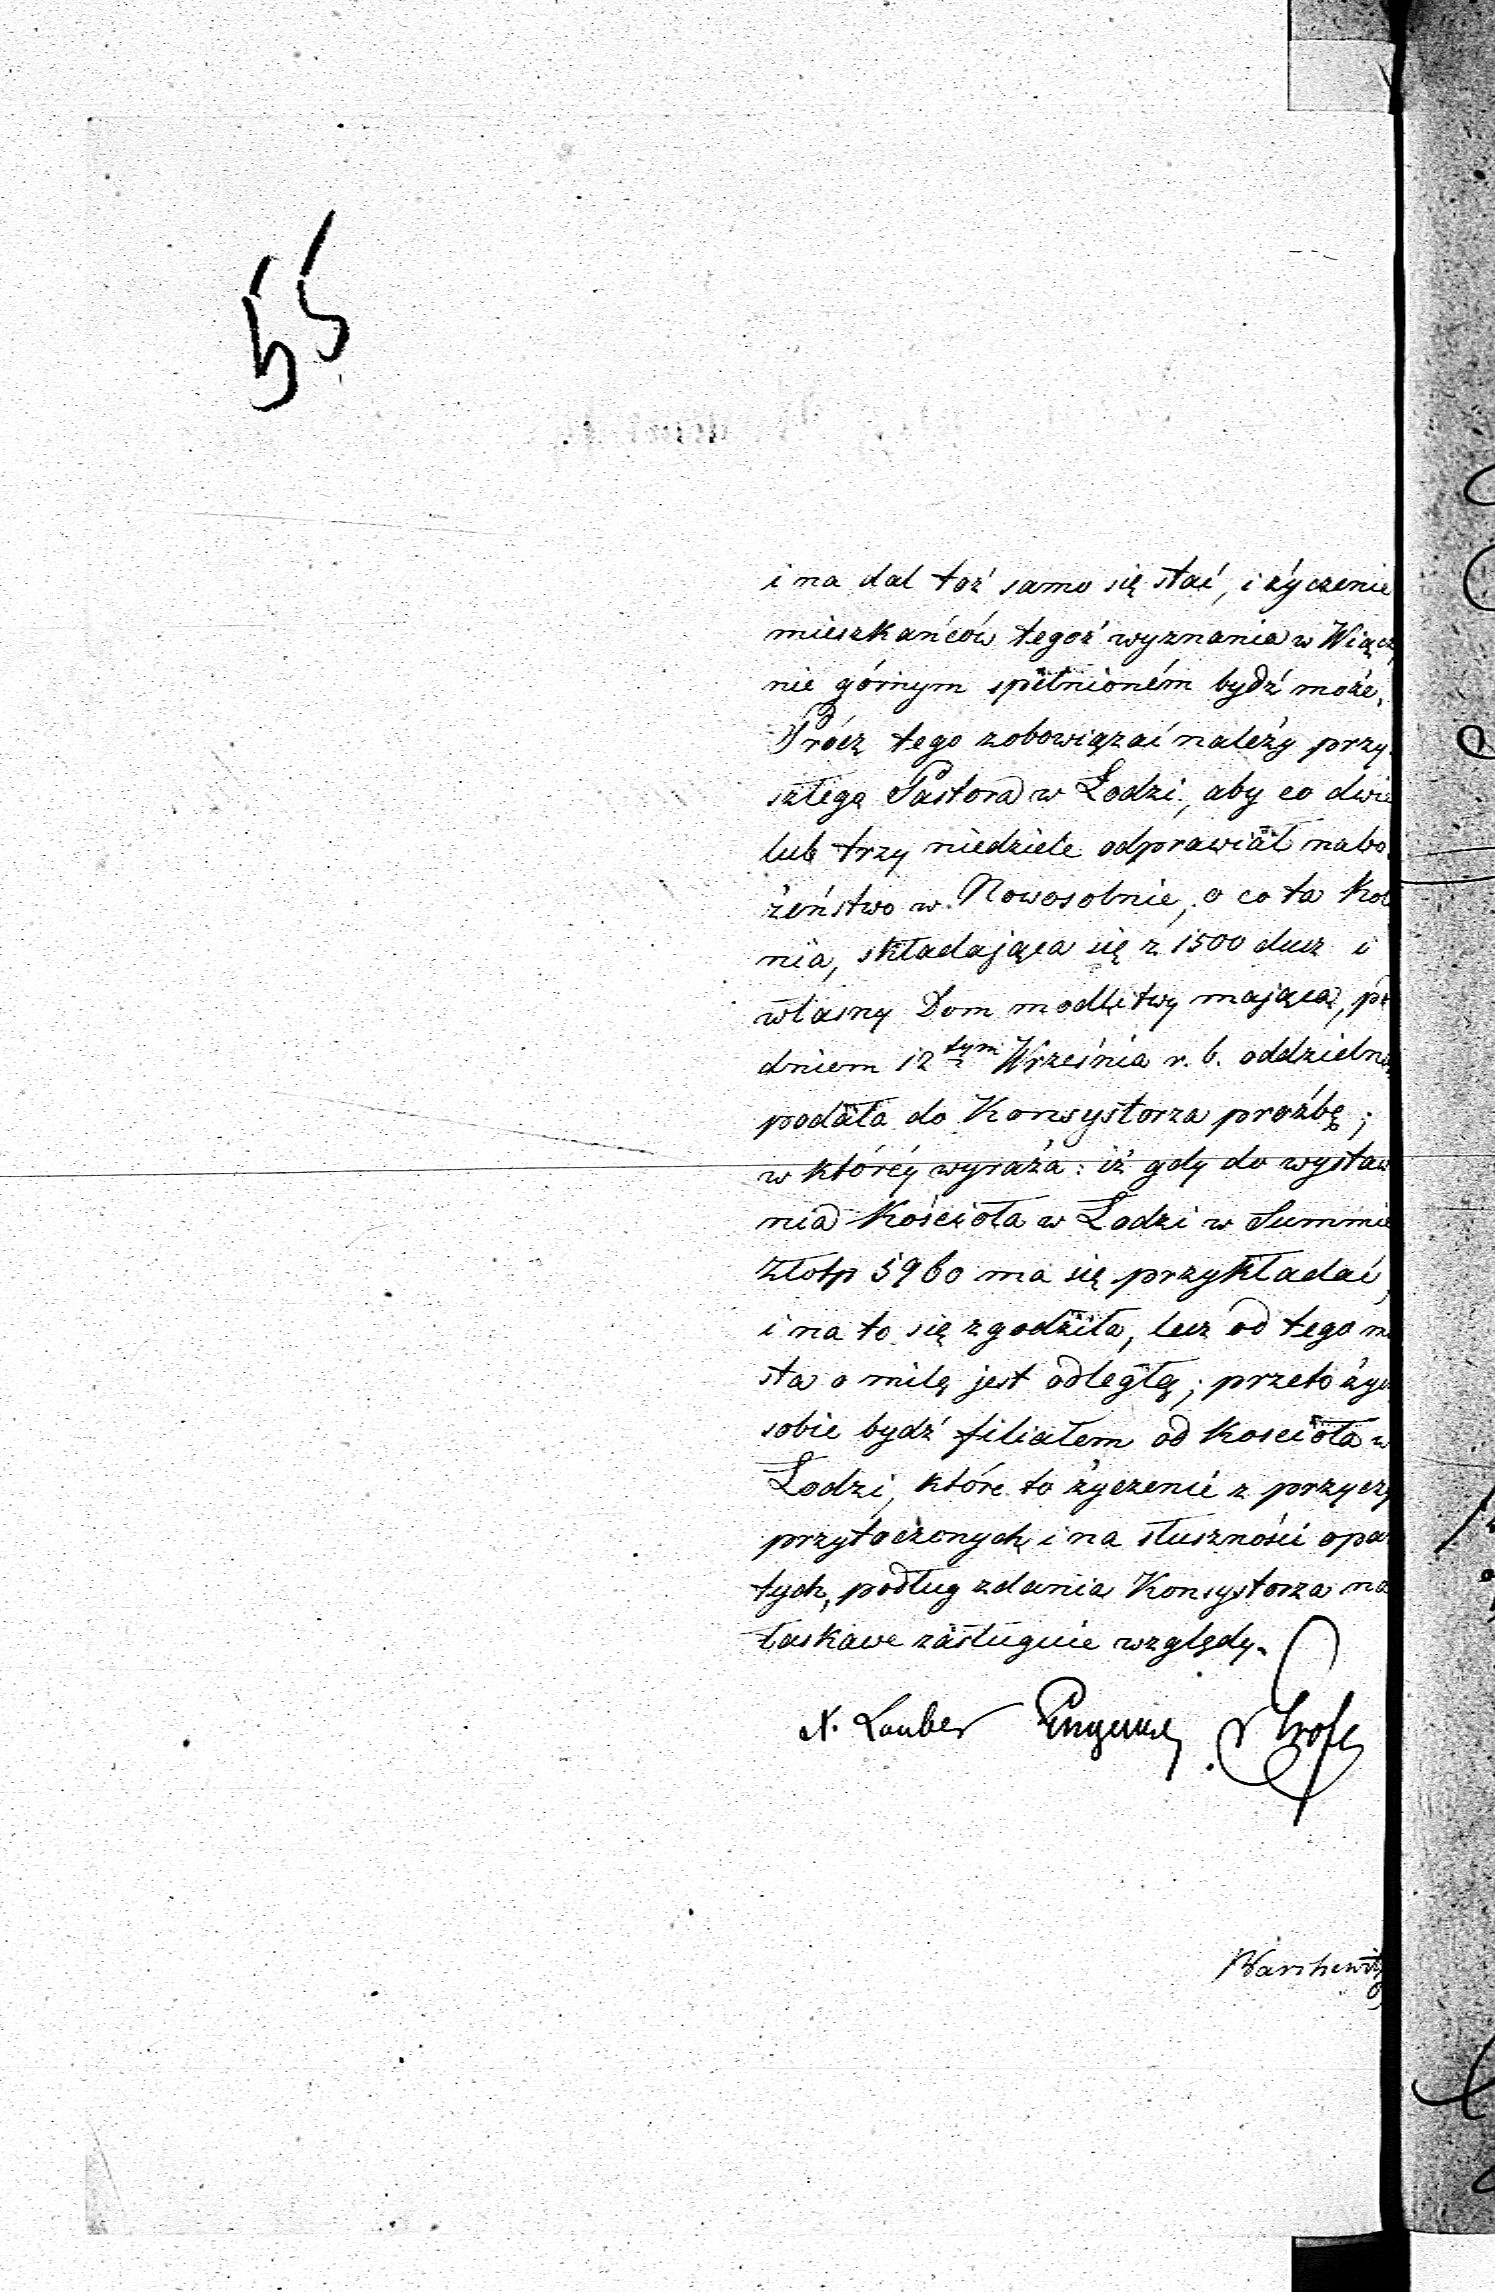 55
i na dal toż samo się stać, i życzenie
mieszkańców tegoż wyznania w Wiącz
nie górnym spełnioném bydź może.
Prócz tego zobowiązać należy przy
szłego Pastora w Łodzi, aby co dwie
lub trzy niedziele odprawiał nabo
żeństwo w Nowosolnie, o co ta Kol
nia, składająca się z 1500 dusz i
własny Dom modlitwy mająca, po
dniem 12tym Września r. b. oddzielną
podała do Konsystorza proźbę;
w któréy wyraża: iż gdy do wystaw
nia Kościoła w Łodzi w Summie
Złotp 5960 ma się przykładać,
i na to się zgodziła, lecz od tego m
sta o milę jest odległą; przeto życ
sobie bydź filiałem od Kościoła w
Łodzi, które to życzenie z przyczy
przytoczonych i na słuszności opar
tych, podług zdania Konsystorza na
łaskawe zasługuie względy.
Lauber